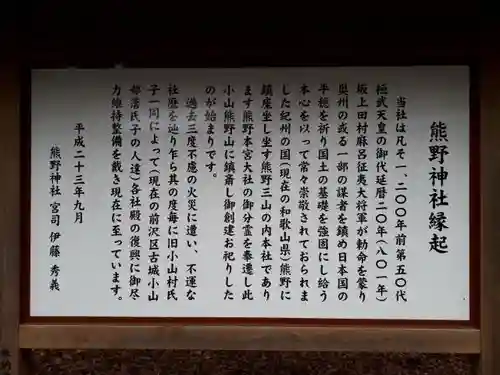 熊野神社縁起
当社は凡そ一二〇〇年前第五〇代
桓武天皇の御代延暦二〇年（八〇一年）
坂上田村麻呂征夷大将軍が勅命を蒙り
奥州の或る一部の謀者を鎮め日本国の
平穏を祈り国土の基礎を強固にし給う
本心を以って常々崇敬されておられま
した紀州の国（現在の和歌山県）熊野に
鎮座坐し坐す熊野三山の内本社であり
ます熊野本宮大社の御分霊を奉遷し此
小山熊野山に鎮斎し御創建お祀りした
のが始まりです。
過去三度不慮の火災に遭い、不運な
社歴を辿り乍ら其の度毎に旧小山村氏
子一同によって（現在の前沢区古城小山
部落氏子の人達）各社殿の復興に御尽
力維持整備を戴き現在に至っています。
平成二十三年九月
熊野神社 宮司 伊藤 秀義